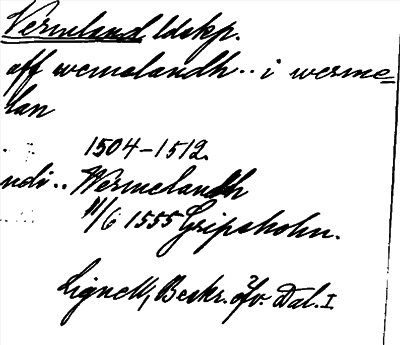 Vermland ldskp.
aff wermalandh.. i werme=
lan
1504-1512.
ndi.. Wermelandh
11/6 1555 Gripsholm.
Lignell, Beskr. öfv. Dal. I